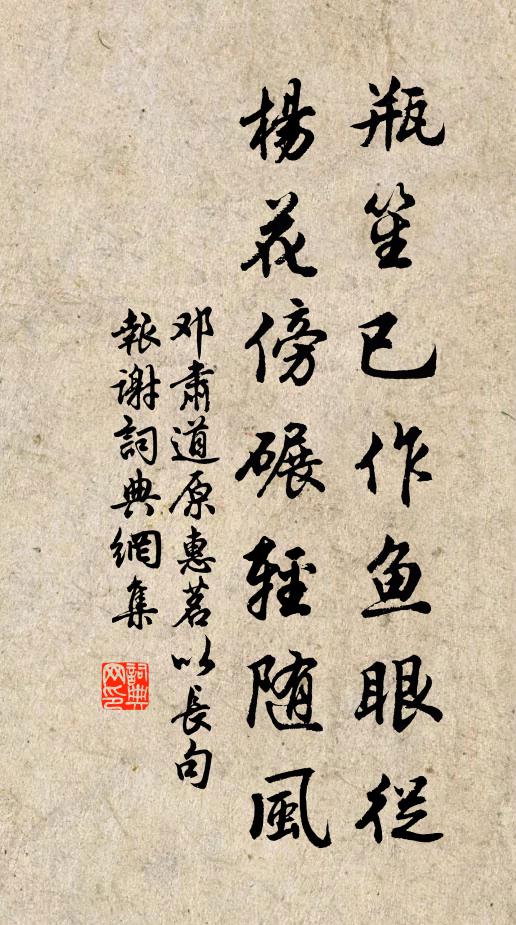 瓶笙已作鱼眼從
楊花傍碾輕随風
邓肅道原惠茗以長句
報谢詞典網集
詞典
网印